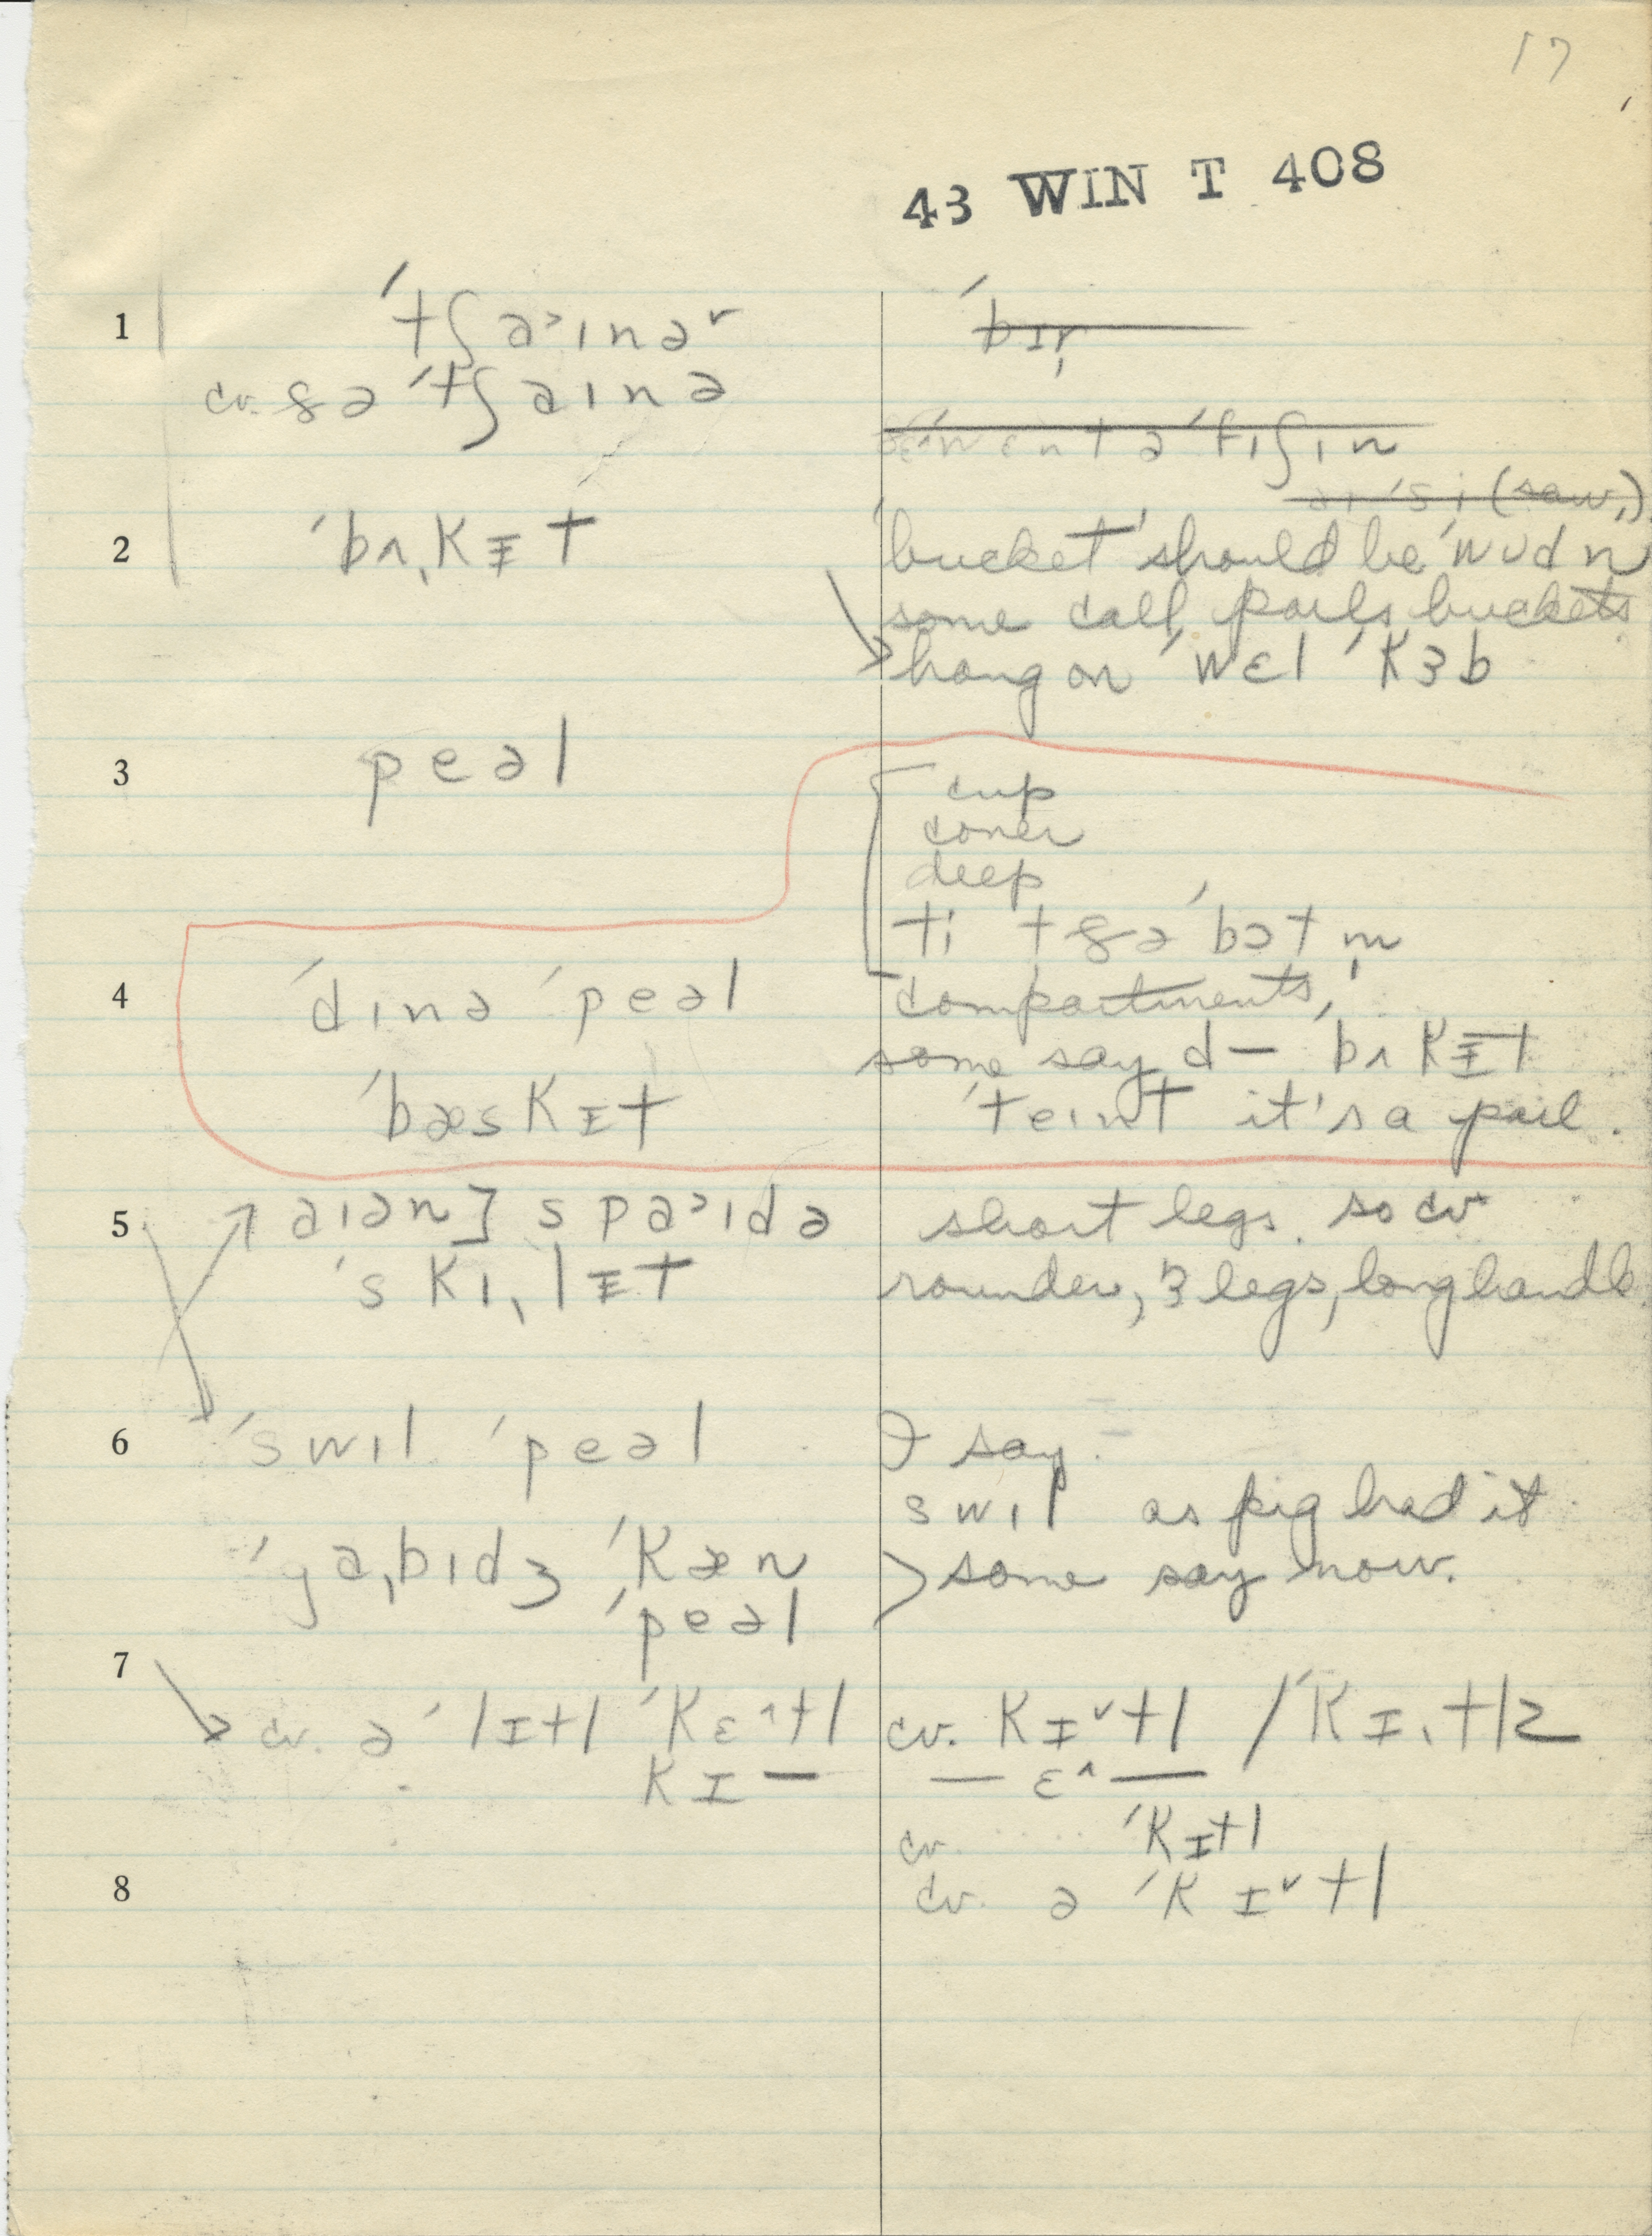 17
43 WIN T 408
1 ˈtʃa˃ɪnəʳ
cv. ðə ˈtʃaɪnə
ˈbɪr
ˈwɛnt ə ˈfɪʃɪn
(saw)
2 ˈbʌˌkɪ̵t
'bucket' should be ˈwʊdn
some call pails buckets
hang on ˈwɛl ˈkɜb
3 peəl
cup
cover
deep
ti t ðə ˈbɔtm̩
4 ˈdɪnə ˈpeəl
compartments,
some say d— ˈbʌkɪ̵t
ˈbæskɪt
ˈteɪnt it's a pail.
5 aɪən] spa˃ɪdə
short legs. so cv
ˈskɪˌlɪ̵t
rounder, 3 legs, long handle
6 ˈswɪl ˈpeəl
I say.
swɪl as pig had it
ˈgaˌbɪdʒ ˈkæn
some say now.
ˈpeəl
7
cv. ə ˈlɪtl ˈkɛ^tl
cv. kɪˇtl / ˈkɪˌtlz
kɪ —
— ɛ^ —
cv. ˈkɪtl
8
cv. ə ˈkɪˇtl